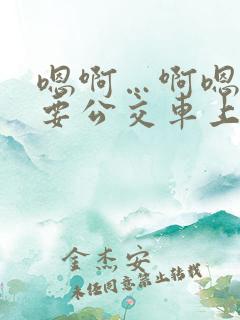 嗯啊…啊嗯
要公交车上
金杰安
未经同意禁止转载